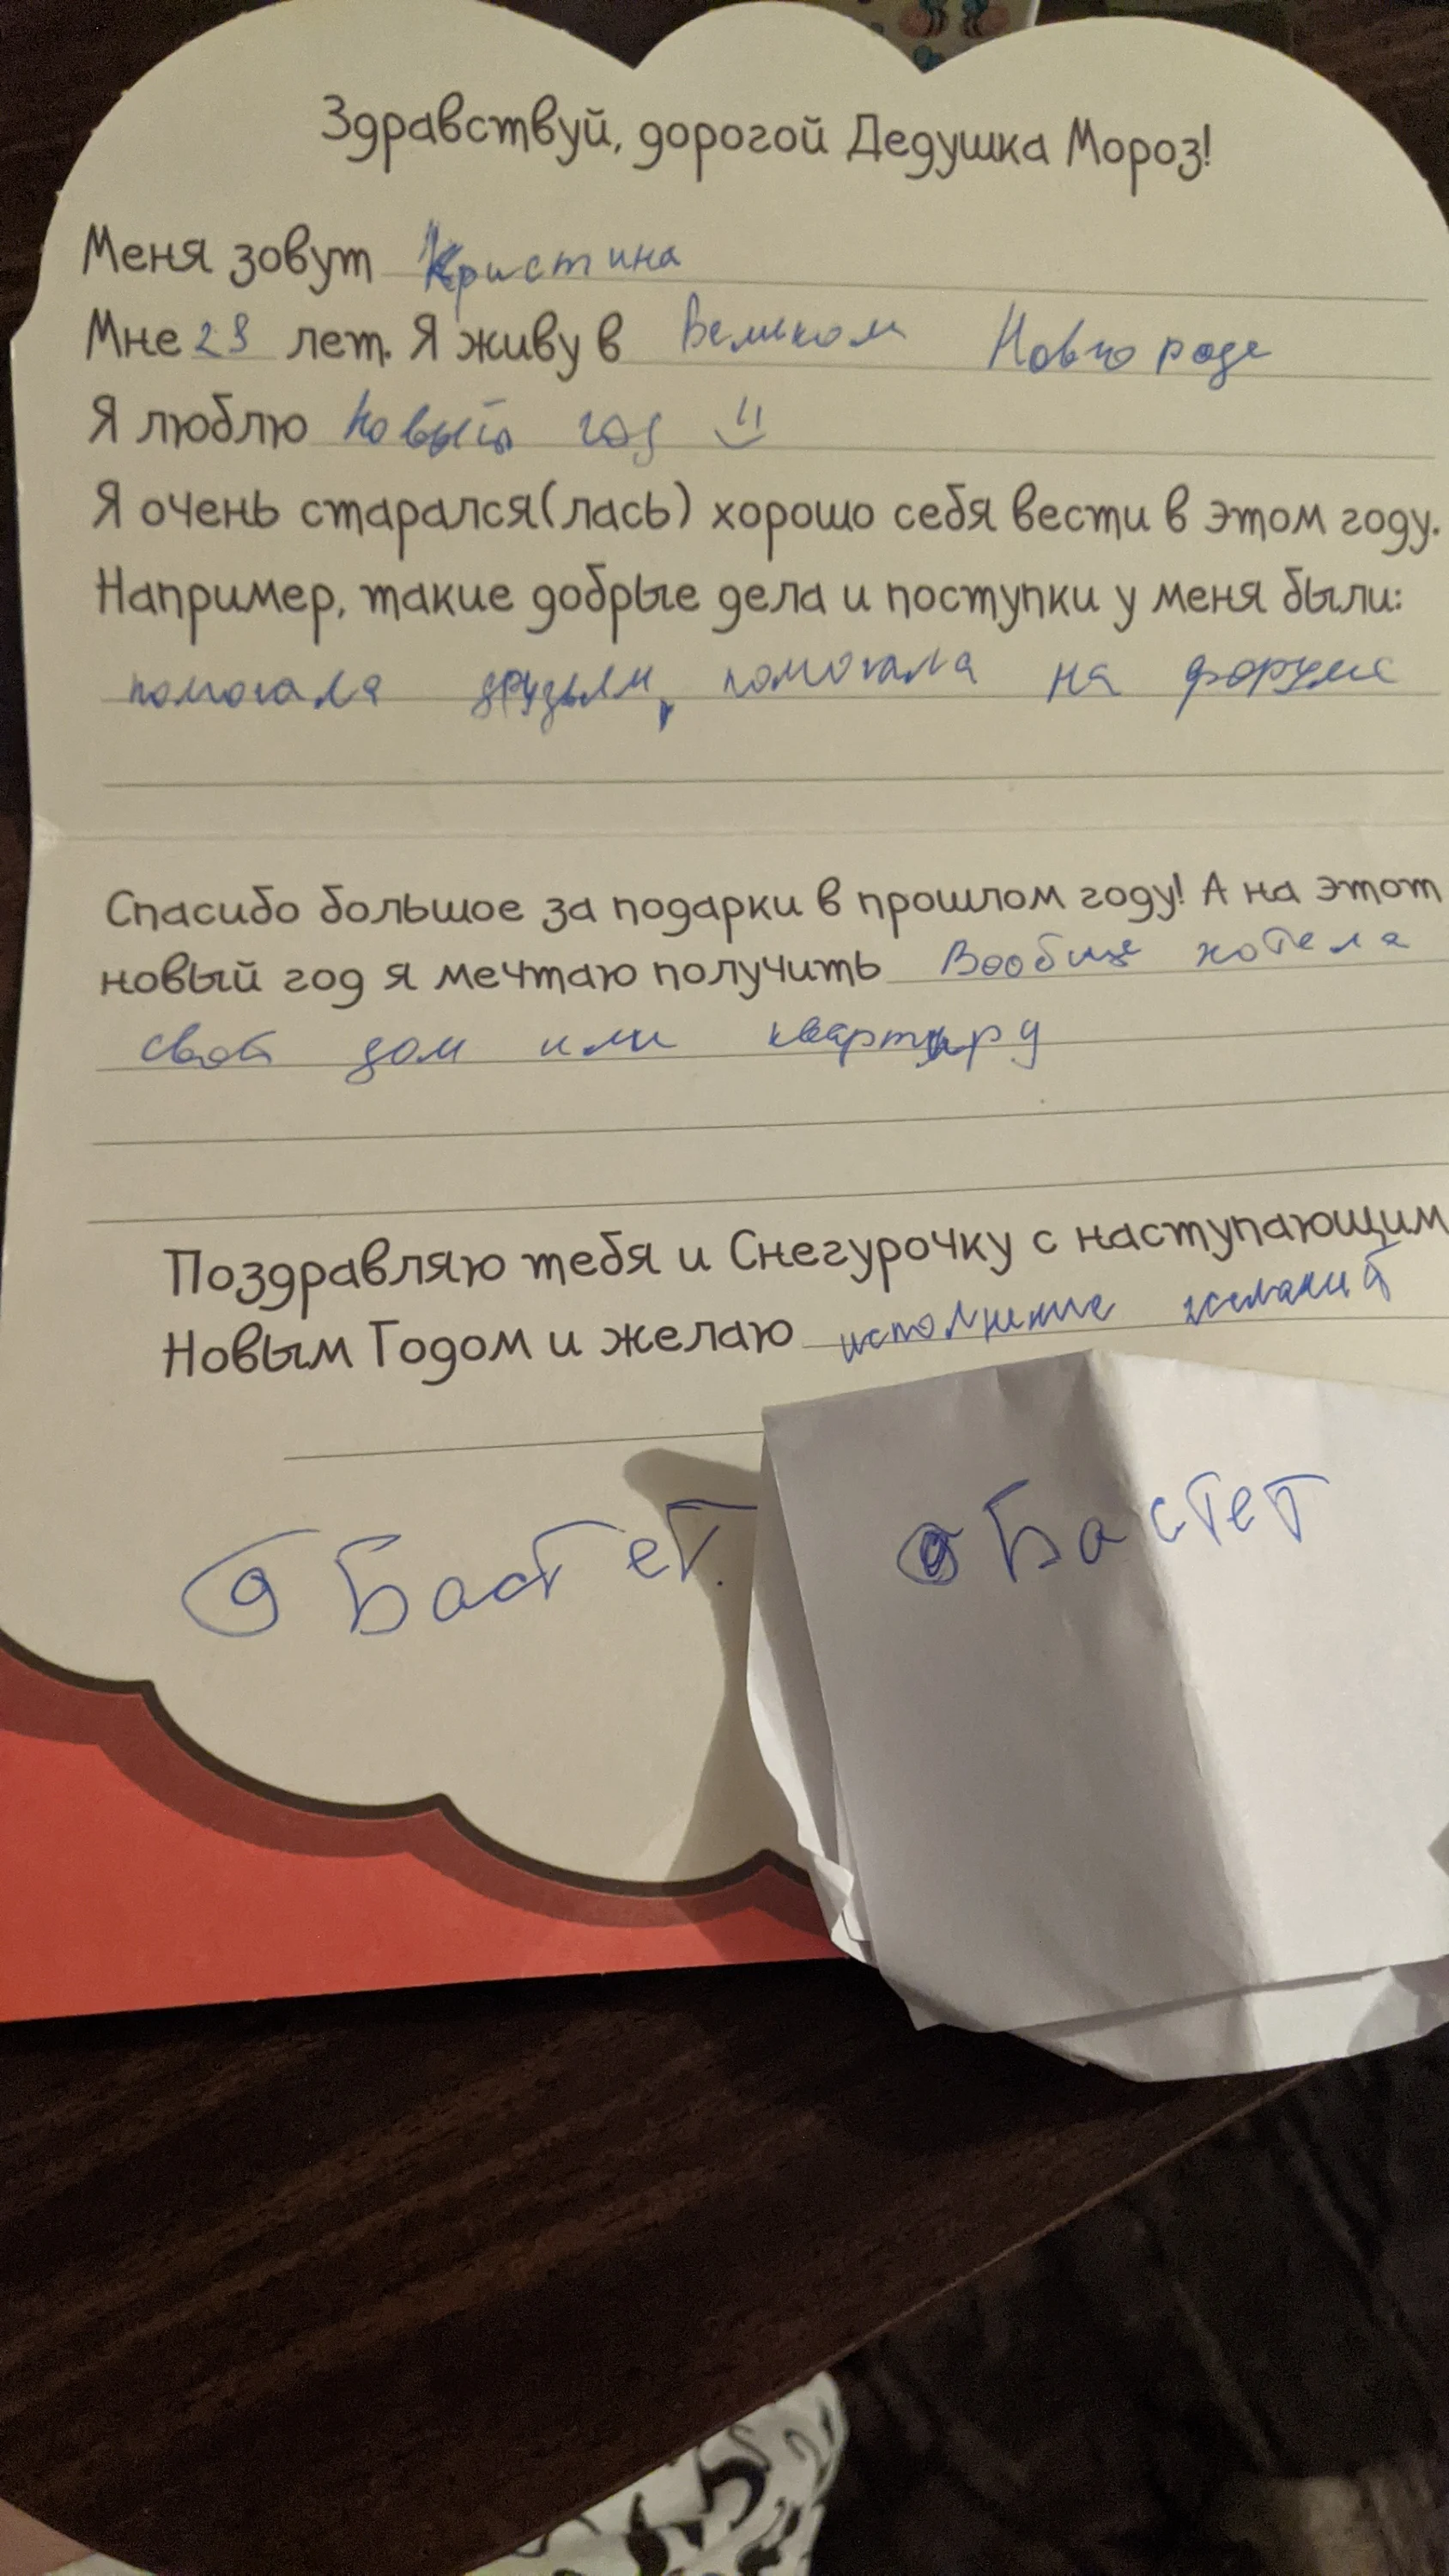 Здравствуй, дорогой Дедушка Мороз!
Меня зовут Кристина
Мне 28 лет. Я живу в Великом Новгороде
Я люблю Новый год
Я очень старался(лась) хорошо себя вести в этом году.
Например, такие добрые дела и поступки у меня были:
помогала друзьям, помогала на форуме
Спасибо большое за подарки в прошлом году! А на этот
новый год я мечтаю получить Вообще хотела
свой дом или квартиру
Поздравляю тебя и Снегурочку с наступающим
Новым Годом и желаю исполнение желаний
Бастет.
Бастет